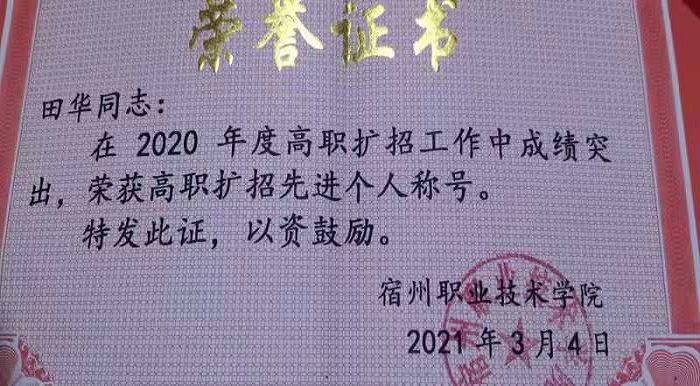 荣誉证书
田华同志：
在 2020 年度高职扩招工作中成绩突
出，荣获高职扩招先进个人称号。
特发此证，以资鼓励。
宿州职业技术学院
2021 年 3 月 4 日